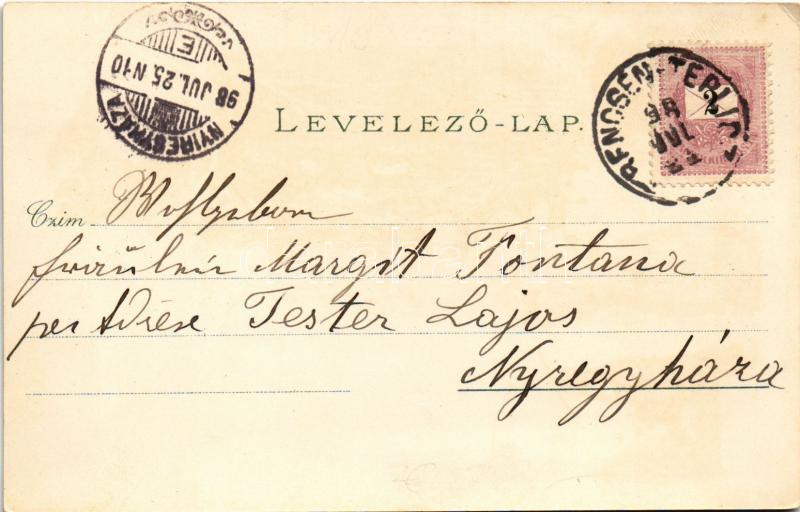 NYIREGYHÁZA
98 JUL. 25. N10
E
TRENCSÉN-TEPLICZ
98
JUL
23
2
LEVELEZŐ-LAP.
Czim
Wohlgeborn
fräulein Margit Fontana
per Adresse Tester Lajos
Nyregyháza